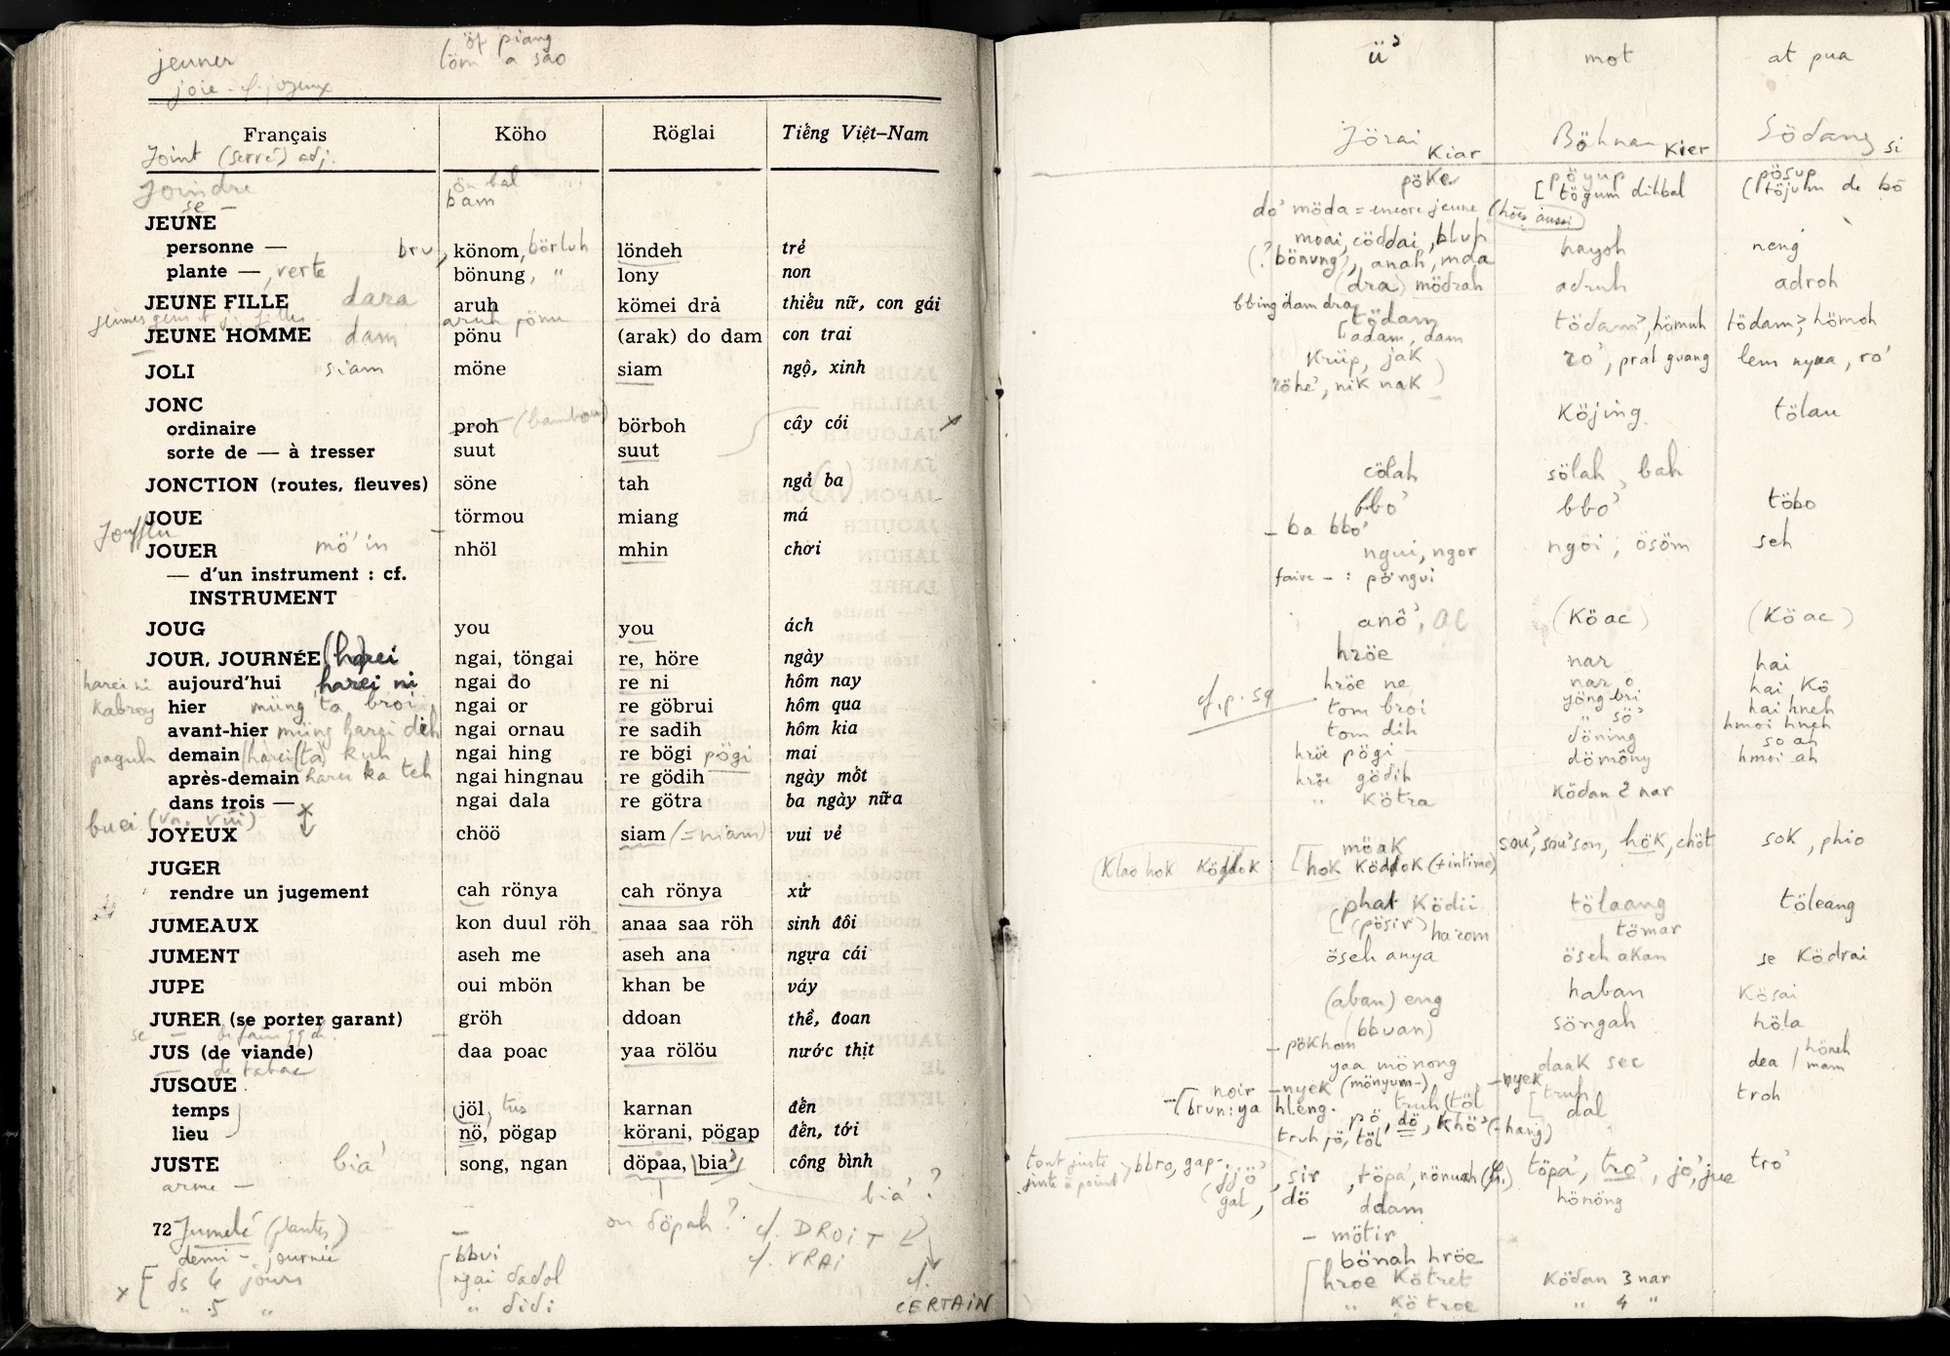 jeuner
öt piang
(löm a sao
joie - cf. joyeux
Français Köho Röglai Tiếng Việt–Nam
Joint (serré) adj.
Joindre ön bal
se — bam
JEUNE
personne — bru, könom, börluh löndeh trẻ
plante —, verte bönung, " lony non
JEUNE FILLE dara aruh kömei drả thiếu nữ, con gái
jeunes gens et j. filles aruh pönu
JEUNE HOMME dam pönu (arak) do dam con trai
JOLI siam möne siam ngộ, xinh
JONC
ordinaire proh (bambou) börboh cây cói
sorte de — à tresser suut suut
JONCTION (routes, fleuves) söne tah ngả ba
JOUE törmou miang má
Joufflu
JOUER mö'in nhöl mhin chơi
— d'un instrument : cf.
INSTRUMENT
JOUG you you ách
JOUR, JOURNÉE (harei ngai, töngai re, höre ngày
harei ni aujourd'hui harei ni ngai do re ni hôm nay
kabroy hier müng ta broi ngai or re göbrui hôm qua
avant-hier müng harei dih ngai ornau re sadih hôm kia
paguh demain (harei (ta) kuh ngai hing re bögi pögi mai
après-demain harei ka teh ngai hingnau re gödih ngày mốt
dans trois — x ngai dala re götra ba ngày nữa
buei (vn. vui)
JOYEUX chöö siam (= niam) vui vẻ
JUGER
rendre un jugement cah rönya cah rönya xử
JUMEAUX kon duul röh anaa saa röh sinh đôi
JUMENT aseh me aseh ana ngựa cái
JUPE oui mbön khan be váy
JURER (se porter garant) gröh ddoan thề, đoan
se —
JUS (de viande) daa poac yaa rölöu nước thịt
— de tabac
JUSQUE
temps (jöl, tus karnan đến
lieu nö, pögap körani, pögap đến, tới
JUSTE bia' song, ngan döpaa, bia' công bình
arme — bia' ?
72 Jumelé (plantes) — ou döpah ? cf. DROIT
demi - journée bbui cf. VRAI
x [ ds 4 jours ngai dadol cf.
" 5 " " didi CERTAIN
ü' mot at pua
Jörai Böhnar Södang
Kiar Kier si
pöke pöyup pösup
[ tögum dihbal (töjum de bö
do' möda = encore jeune (hörs aussi)
moai, cöddai, blup hayoh neng
(? bönung', anah, mda
(dra) mödrah adruh adroh
bbing dam dra
[ tödam tödam', hömuh tödam', hömoh
adam, dam
krüp, jak ro', pral guang lem nyaa, ro'
röhe', nik nak )
köjing tölau
cölah sölah, bah
bbo' bbo' töbo
– ba bbo'
ngui, ngor ngoi ; ösöm seh
faire – : pöngui
anô', ac (köac) (köac)
hröe nar hai
hröe ne nar o hai kô
cf. p. 59 tom broi yöng bri hai hneh
tom dih " sö' hmoi hneh
hröe pögi döning so ah
hröe gödih dömôny hmoi ah
" kötra ködan 2 nar
möak sou', sou' son, hök, chöt sok, phio
Klao hok köddok [ hok köddok (+ intime)
[ phat ködii tölaang töleang
(pösir) harom tömar
öseh anya öseh akan se ködrai
(aban) eng haban kösai
(bbuan) söngah höla
– pökhom
yaa mönong daak sec dea / höneh
mam
noir – nyek (mönyum–) – nyek
[ brun : ya hleng. truh (töl [ truh troh
pö, dö, khö' (– hang) dal
truh pö, töl'
tout juste
juste à point > bbro, gap– jjö', sir, töpa', nönuah töpa', tro', jo', jue tro'
gal, dö ddam hönöng
– mötir
bönah hröe
hroe kötret ködan 3 nar
" kötroe " 4 "